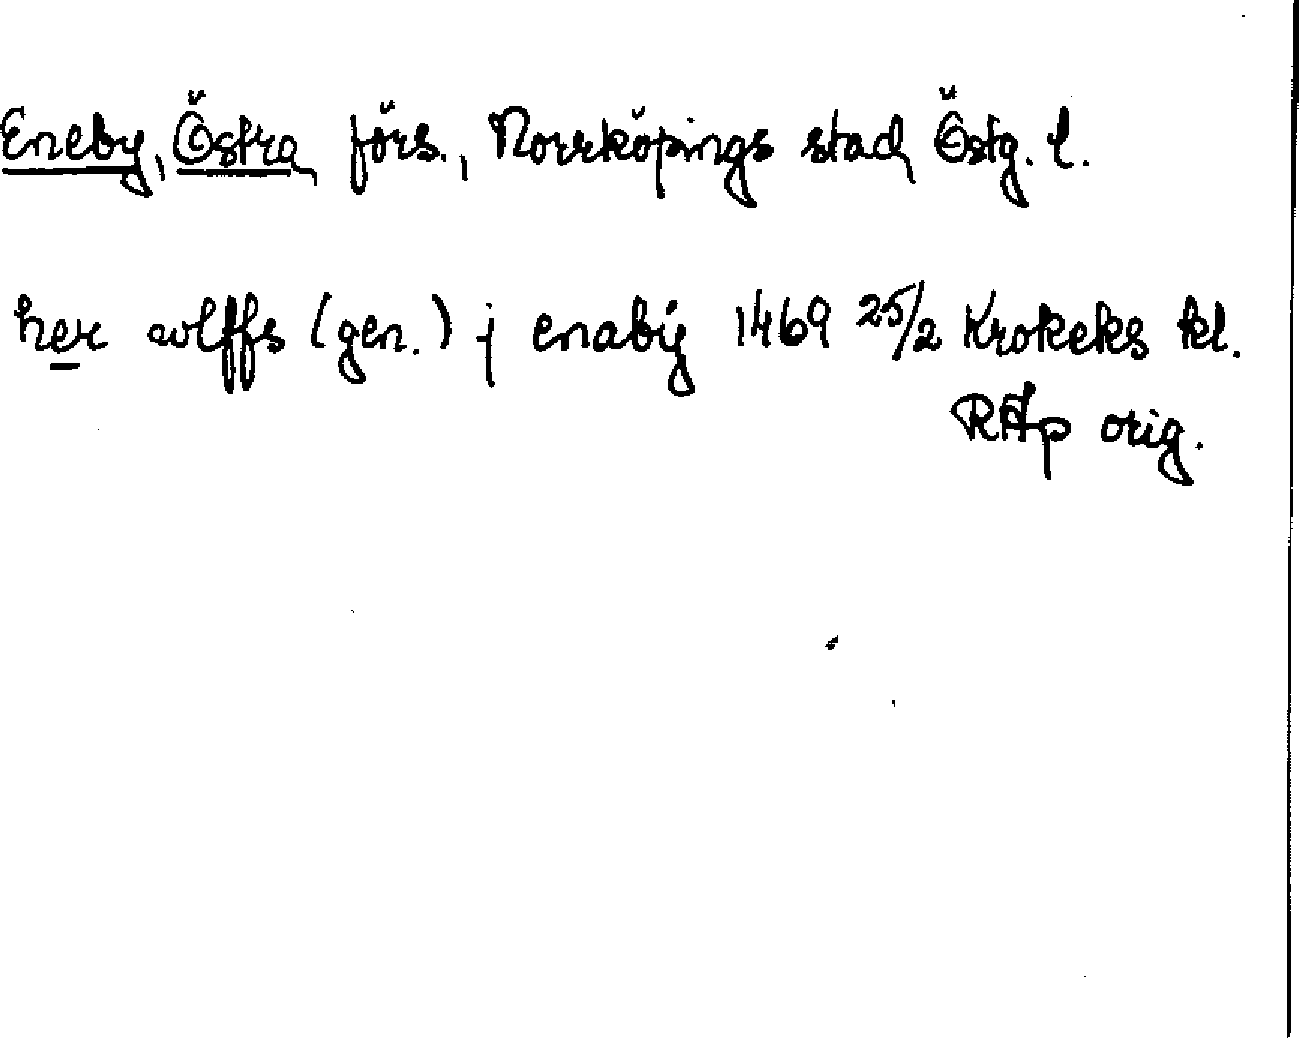 Eneby, Östra, förs., Norrköpings stad, Östg. l.
her wlffs (gen.) j enabÿ 1469 25/2 Krokeks kl.
RAp orig.